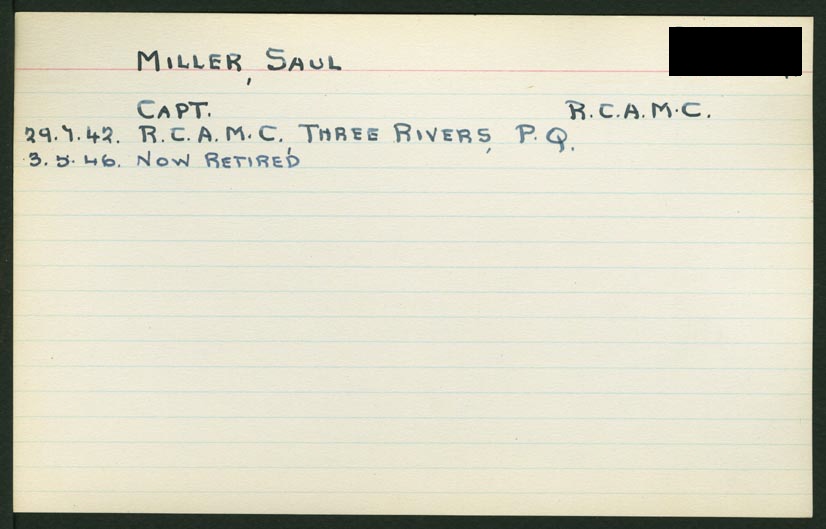 MILLER, SAUL
CAPT. R.C.A.M.C.
29.7.42. R.C.A.M.C., THREE RIVERS, P.Q.
3.5.46. NOW RETIRED